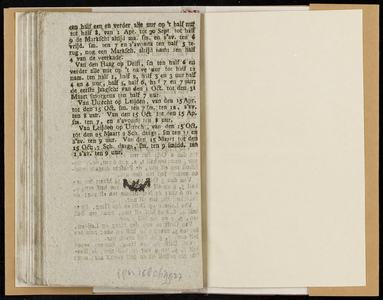 een half een en verder alle uur op 't half uur
tot half 8, van 1 Apr. tot 30 Sept. tot half
9 de Marktscht altijd ma. sm. en s'av. ten 6
vrijd. sm. ten 7 en s'avonds ten half 5 te-
rug, nog een Marktsch. altijd nam. ten half
4 van de veerkade.
Van den Haag op Delft, sm ten half 6 en
verder alle uur op 't en ve uur tot half 12
nam. ten half 1, half 2, half 3 en 3 uur half
4 en 4 uur, half 5, half 6, half 7 en 7 uur;
de eerste Jaagscht van den 1 Oct. tot den 31
Maart smorgens ten half 7 uur.
Van Utrecht op Leijden, van den 15 Apr.
tot den 15 Oct. sm. ten 7 sm. ten 12, s'av.
ten 8 uur. Van den 15 Oct tot den 15 Ap.
sm. ten 7, en s'avonds ten 8 uur.
Van Leijden op Utrecht, van den 15 Oct.
tot den 15 Maart 2 Sch. daags, sm ten 11 en
s'av. ten 9 uur. Van den 15 Maart tot den
15 Oct. 3 Sch. daags, sm. ten 9 smidd. ten
1 s'av. ten 9 uur.